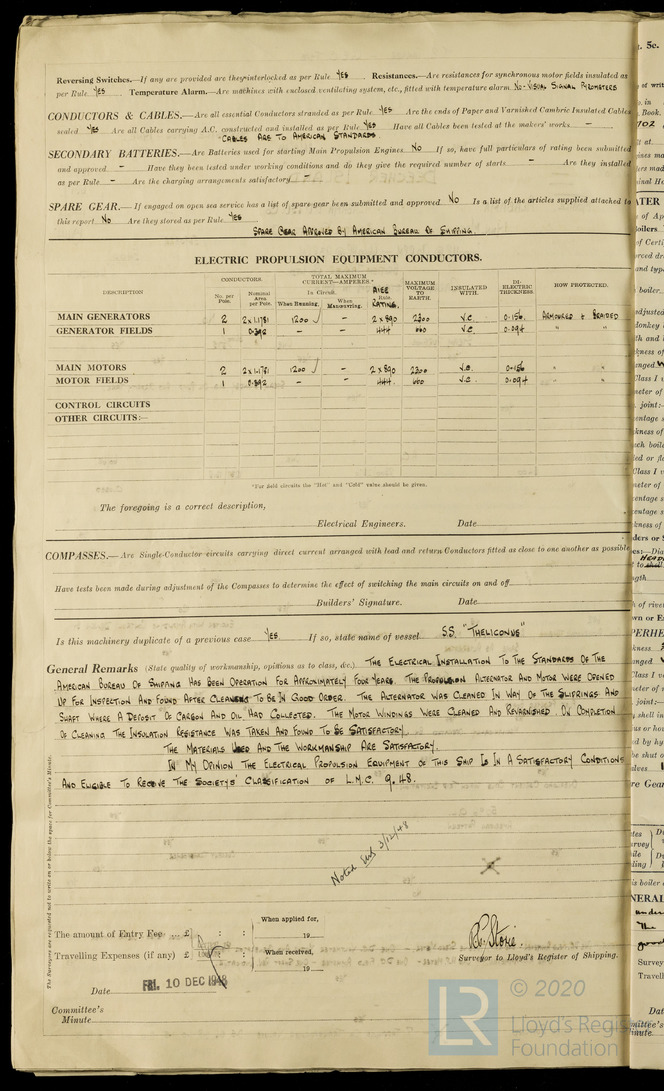 Reversing Switches.—If any are provided are they interlocked as per Rule YES. Resistances.—Are resistances for synchronous motor fields insulated as
per Rule YES Temperature Alarm.—Are machines with enclosed ventilating system, etc., fitted with temperature alarm NO-VISUAL SIGNAL PYROMETERS
CONDUCTORS & CABLES.—Are all essential Conductors stranded as per Rule YES Are the ends of Paper and Varnished Cambric Insulated Cables
sealed YES Are all Cables carrying A.C. constructed and installed as per Rule YES Have all Cables been tested at the makers' works —
CABLES ARE TO AMERICAN STANDARDS
SECONDARY BATTERIES.—Are Batteries used for starting Main Propulsion Engines NO If so, have full particulars of rating been submitted
and approved — Have they been tested under working conditions and do they give the required number of starts — Are they installed
as per Rule — Are the charging arrangements satisfactory —
SPARE GEAR.—If engaged on open sea service has a list of spare gear been submitted and approved NO Is a list of the articles supplied attached to
this report NO Are they stored as per Rule YES
SPARE GEAR APPROVED BY AMERICAN BUREAU OF SHIPPING
ELECTRIC PROPULSION EQUIPMENT CONDUCTORS.
DESCRIPTION CONDUCTORS. No. per Pole. Nominal Area per Pole. TOTAL MAXIMUM CURRENT—AMPERES.* In Circuit. When Running. When Manœuvring. AIEE RATING. MAXIMUM VOLTAGE TO EARTH. INSULATED WITH. DI-ELECTRIC THICKNESS. HOW PROTECTED.
MAIN GENERATORS 2 2x1.1781 1200 √ — 2 x 890 2300 V.C. 0.156 ARMOURED & BRAIDED
GENERATOR FIELDS 1 0.392 — — 444 660 V.C. 0.094 " "
MAIN MOTORS 2 2x1.1781 1200 √ — 2 x 890 2300 V.C. 0.156 " "
MOTOR FIELDS 1 0.392 — — 444 660 V.C. 0.094 " "
CONTROL CIRCUITS
OTHER CIRCUITS:—
*For field circuits the "Hot" and "Cold" value should be given.
The foregoing is a correct description,
Electrical Engineers. Date
COMPASSES.—Are Single-Conductor circuits carrying direct current arranged with lead and return Conductors fitted as close to one another as possible
Have tests been made during adjustment of the Compasses to determine the effect of switching the main circuits on and off
Builders' Signature. Date
Is this machinery duplicate of a previous case YES. If so, state name of vessel S.S. "THELICONUS"
General Remarks (State quality of workmanship, opinions as to class, &c.) THE ELECTRICAL INSTALLATION TO THE STANDARDS OF THE
AMERICAN BUREAU OF SHIPPING HAS BEEN OPERATION FOR APPROXIMATELY FOUR YEARS. THE PROPULSION ALTERNATOR AND MOTOR WERE OPENED
UP FOR INSPECTION AND FOUND AFTER CLEANING TO BE IN GOOD ORDER. THE ALTERNATOR WAS CLEANED IN WAY OF THE SLIPRINGS AND
SHAFT WHERE A DEPOSIT OF CARBON AND OIL HAD COLLECTED. THE MOTOR WINDINGS WERE CLEANED AND REVARNISHED. ON COMPLETION
OF CLEANING THE INSULATION RESISTANCE WAS TAKEN AND FOUND TO BE SATISFACTORY.
THE MATERIALS USED AND THE WORKMANSHIP ARE SATISFACTORY.
IN MY OPINION THE ELECTRICAL PROPULSION EQUIPMENT OF THIS SHIP IS IN A SATISFACTORY CONDITIONS
AND ELIGIBLE TO RECEIVE THE SOCIETY'S CLASSIFICATION OF L.M.C. 9.48.
Noted 3/12/48
The Surveyors are requested not to write on or below the space for Committee's Minute.
The amount of Entry Fee ... £ : : When applied for,
19
Travelling Expenses (if any) £ : : When received,
19
Surveyor to Lloyd's Register of Shipping.
Date FRI. 10 DEC 1948
Committee's
Minute
LR © 2020
Lloyd's Register
Foundation